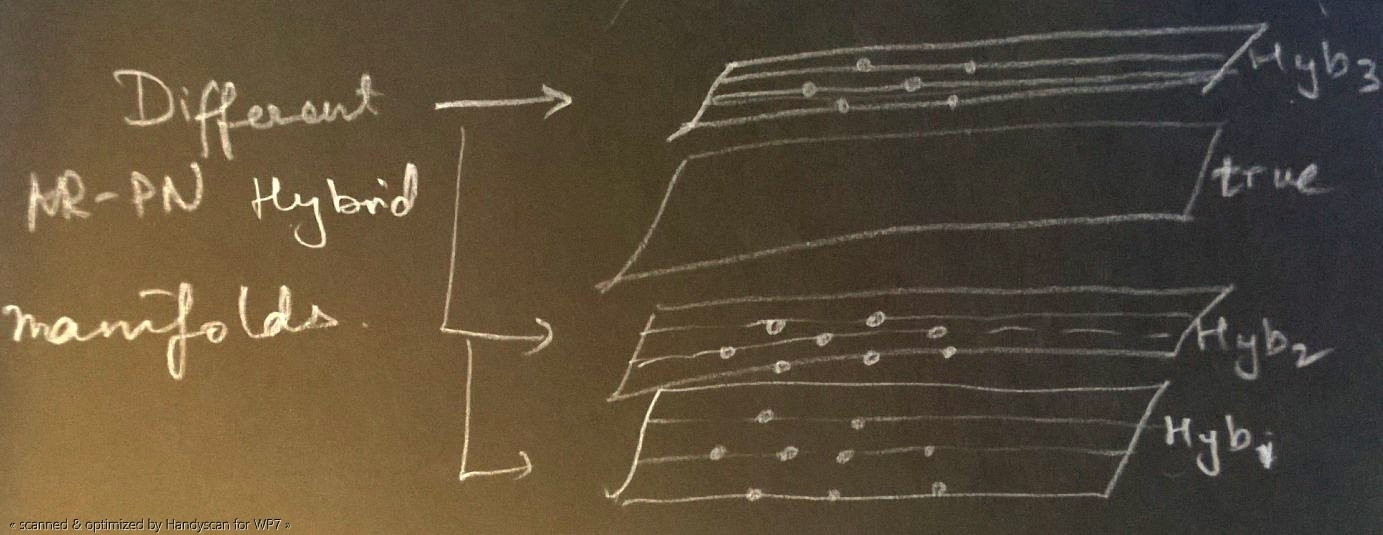 Different
NR-PN Hybrid
manifolds.
Hyb3
true
Hyb2
Hyb1
« scanned & optimized by Handyscan for WP7 »